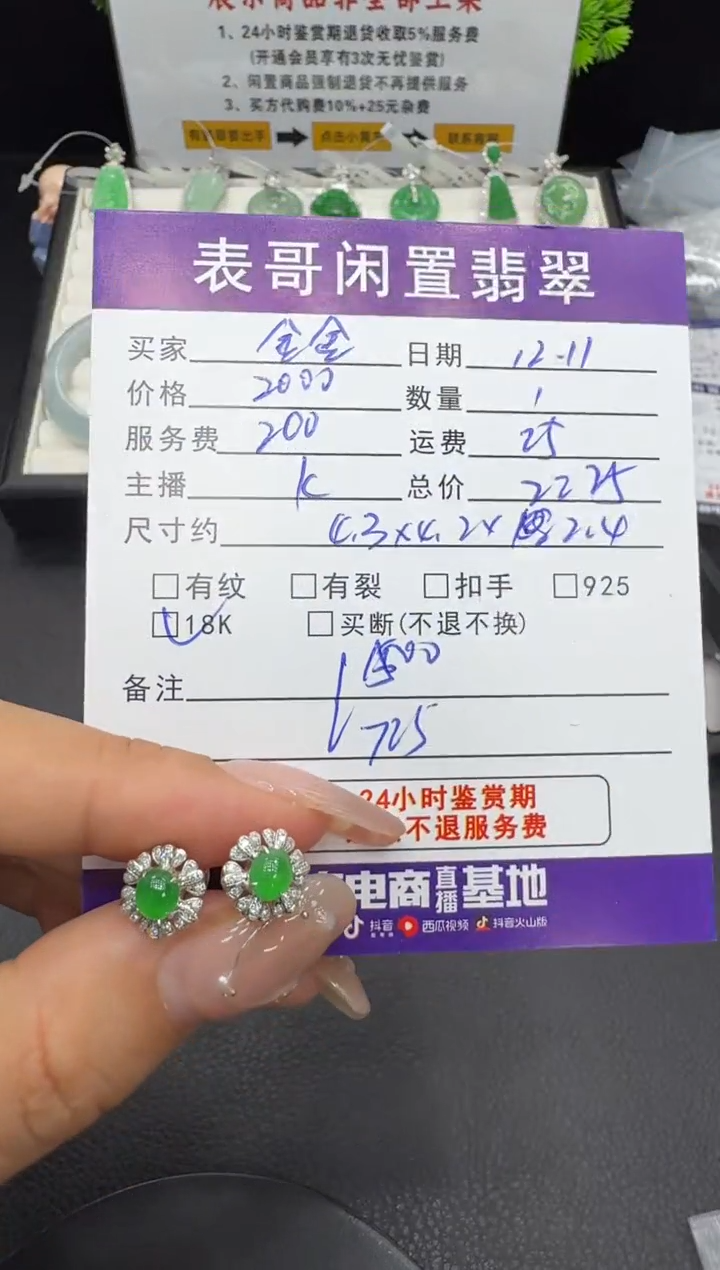 表示商品非全部上架
1、24小时鉴赏期退货收取5%服务费
(开通会员享有3次无忧鉴赏)
2、闲置商品强制退货不再提供服务
3、买方代购费10%+25元杂费
点击小黄车
联系客服
表哥闲置翡翠
买家 金金 日期 12.11
价格 2000 数量 1
服务费 200 运费 25
主播 K 总价 2225
尺寸约 4.3x4.2x 2.4
□有纹 □有裂 □扣手 □925
□18K □买断(不退不换)
备注 1500
725
24小时鉴赏期
不退服务费
电商直播基地
抖音 西瓜视频 抖音火山版